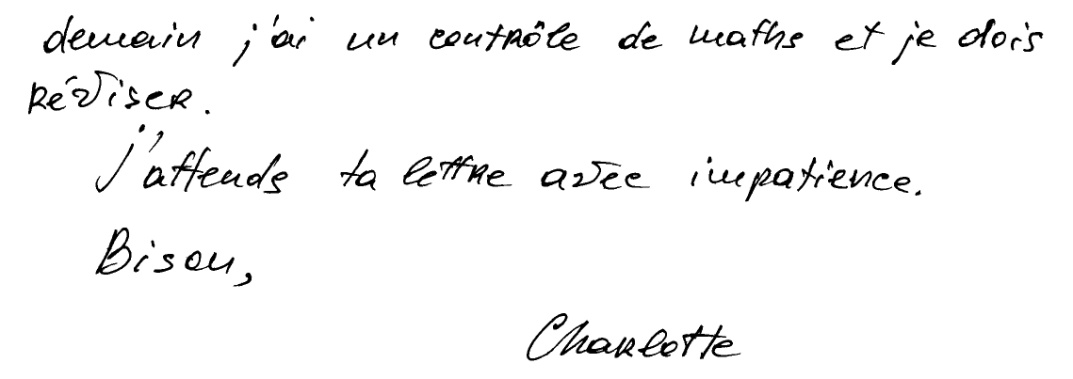 demain j'ai un contrôle de maths et je dois
réviser.
J'attends ta lettre avec impatience.
Bisou,
Charlotte